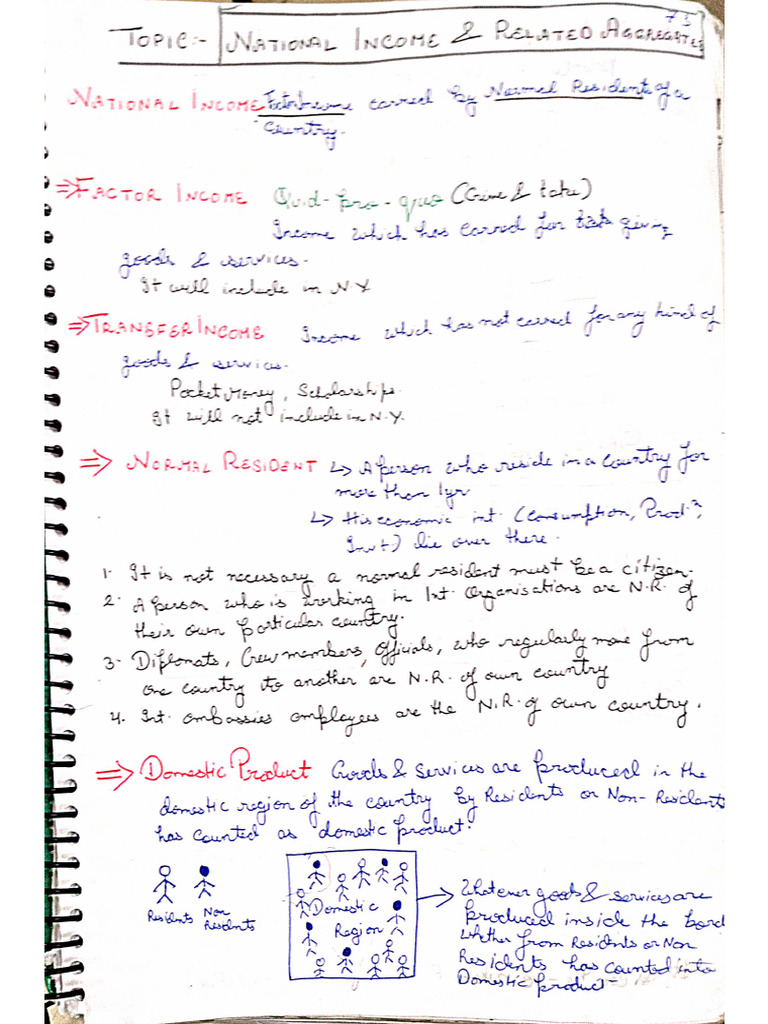 73
TOPIC:- NATIONAL INCOME & RELATED AGGREGATES
NATIONAL INCOME Factor Income earned by Normal Residents of a
country.
⇒ FACTOR INCOME Quid-pro-quo (Give & take)
Income which has earned for giving
goods & services.
It will include in N.Y
⇒ TRANSFER INCOME Income which has not earned for any kind of
goods & services.
Pocket Money, Scholarships.
It will not include in N.Y.
⇒ NORMAL RESIDENT ↳ A person who reside in a country for
more than 1yr
↳ His economic int. (Consumption, Prodⁿ,
Invt) lie over there.
1. It is not necessary a normal resident must be a citizen.
2. A person who is working in Int. Organisations are N.R. of
their own particular country.
3. Diplomats, Crew members, Officials, who regularly move from
one country to another are N.R. of own country
4. Int. embassies employees are the N.R. of own country.
⇒ Domestic Product Goods & services are produced in the
domestic region of the country by Residents or Non-Residents
has counted as domestic product.
Residents Non Residents
Domestic
Region
→ Whatever goods & services are
produced inside the bord
whether from Residents or Non
Residents has counted into
Domestic product